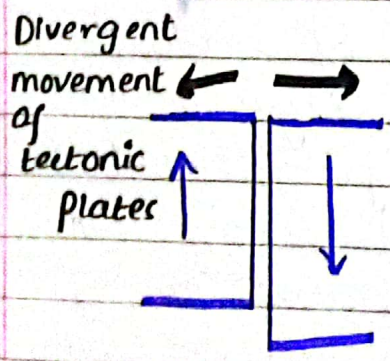 Divergent
movement
of
tectonic
Plates